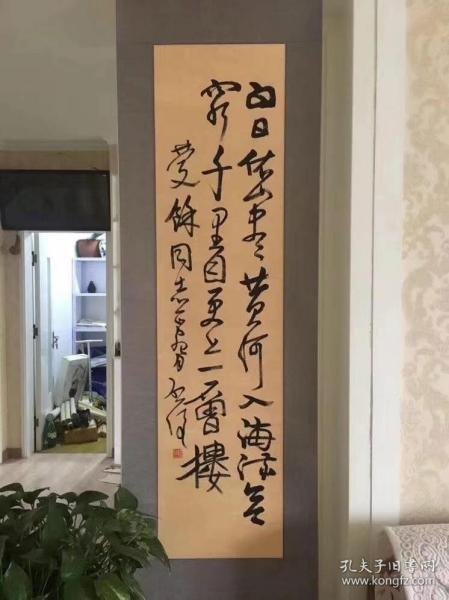 白日依山尽黄河入海流欲
穷千里目更上一層樓
餘同志
孔夫子旧书网
www.kongfz.com